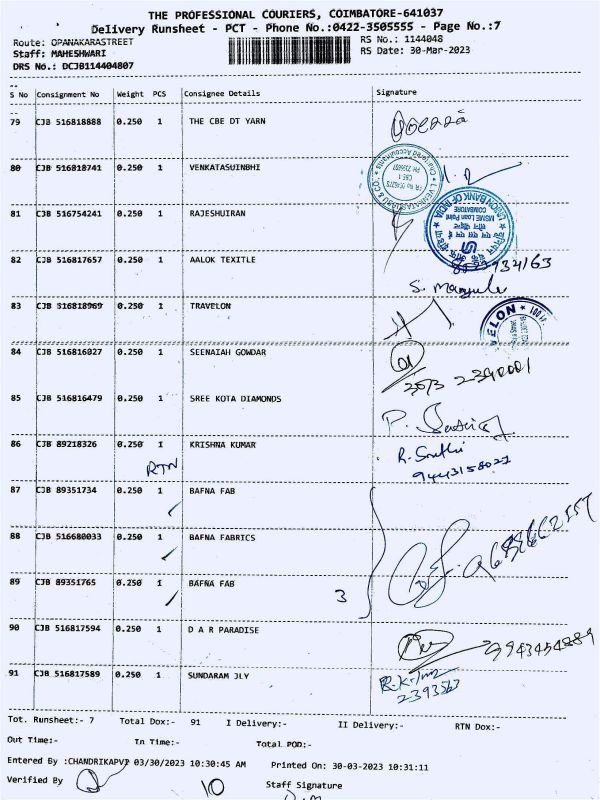 THE PROFESSIONAL COURIERS, COIMBATORE-641037
Delivery Runsheet - PCT - Phone No.:0422-3505555 - Page No.:7
Route: OPANAKARASTREET RS No.: 1144048
Staff: MAHESHWARI RS Date: 30-Mar-2023
DRS No.: DCJB114404807
S No Consignment No Weight PCS Consignee Details Signature
79 CJB 516818888 0.250 1 THE CBE DT YARN
80 CJB 516818741 0.250 1 VENKATASUINBHI
Chartered Accountants
81 CJB 516754241 0.250 1 RAJESHUIRAN
UNION BANK OF INDIA
MSME Loan Point
COIMBATORE
82 CJB 516817657 0.250 1 AALOK TEXITLE
S. Manjula
83 CJB 516818969 0.250 1 TRAVELON
ELON
84 CJB 516816027 0.250 1 SEENAIAH GOWDAR
2390001
85 CJB 516816479 0.250 1 SREE KOTA DIAMONDS
86 CJB 89218326 0.250 1 KRISHNA KUMAR
RTN
9443158027
87 CJB 89351734 0.250 1 BAFNA FAB
88 CJB 516680033 0.250 1 BAFNA FABRICS
89 CJB 89351765 0.250 1 BAFNA FAB
3
90 CJB 516817594 0.250 1 D A R PARADISE
9943454889
91 CJB 516817589 0.250 1 SUNDARAM JLY
Tot. Runsheet:- 7 Total Dox:- 91 I Delivery:- II Delivery:- RTN Dox:-
Out Time:- In Time:- Total POD:-
Entered By :CHANDRIKAPVP 03/30/2023 10:30:45 AM Printed On: 30-03-2023 10:31:11
Verified By 10 Staff Signature